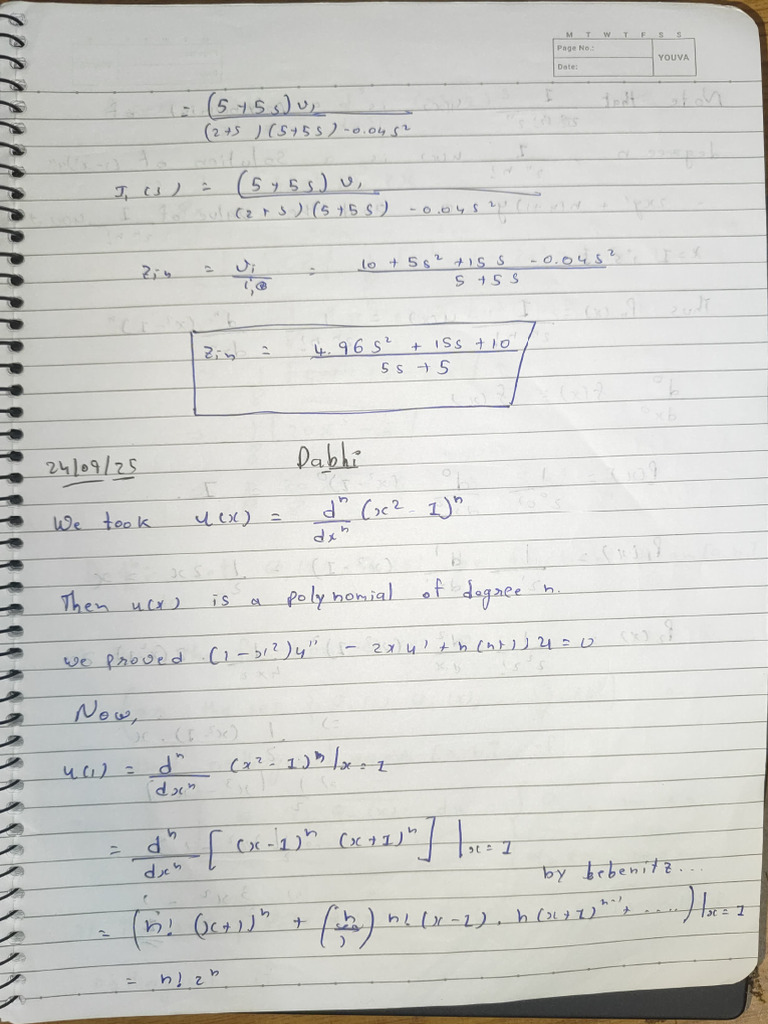 M T W T F S S
Page No.:
Date:
YOUVA
= (5+5s)v₁ / (2+s)(5+5s)-0.04s²
I₁(s) = (5+5s)v₁ / (2+s)(5+5s) -0.04s²
Zin = vi / i₁ = 10+5s²+15s-0.04s² / 5+5s
Zin = 4.96s² + 15s + 10 / 5s+5
24/09/25 Dabhi
We took u(x) = dⁿ/dxⁿ (x²-1)ⁿ
Then u(x) is a polynomial of degree n.
we proved (1-x²)u'' - 2xu' + n(n+1)u = 0
Now,
u(1) = dⁿ/dxⁿ (x²-1)ⁿ |x=1
= dⁿ/dxⁿ [ (x-1)ⁿ (x+1)ⁿ ] |x=1
by bebenitz...
= (n! (x+1)ⁿ + (n 1) n! (x-1). n(x+1)ⁿ⁻¹ + .....) |x=1
= n! 2ⁿ